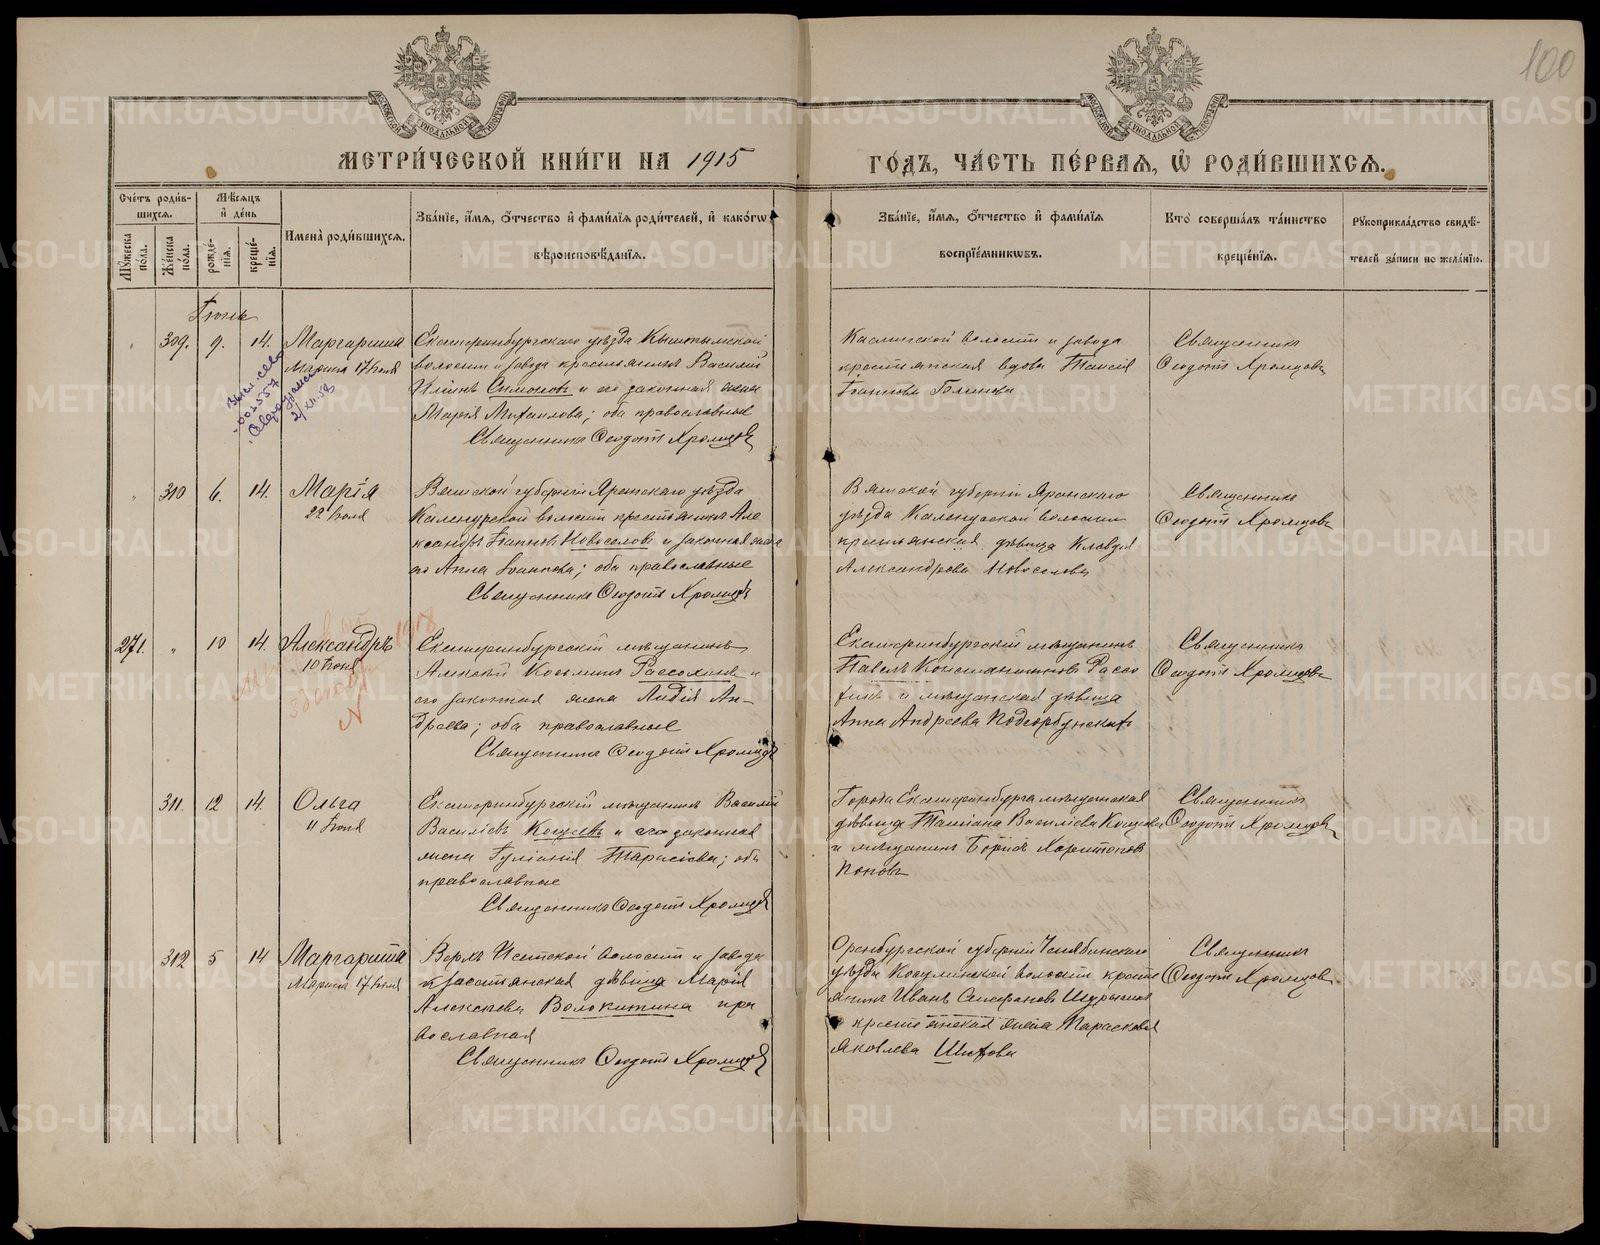 100
МЕТРИ́ЧЕСКОЙ КНИ́ГИ НА 1915 ГО́ДЪ, ЧА́СТЬ ПЕ́РВАЯ, Ѡ РОДИ́ВШИХСЯ.
Сче́тъ роди́в-
шихся.
Мѣ́сяцъ
и де́нь
Му́жеска по́ла.
Же́нска по́ла.
рожде́-
нія.
креще́-
нія.
Имена̀ роди́вшихся.
Зва́ніе, и́мя, о́тчество и фами́лія роди́телей, и како́гѡ
вѣроисповѣ́данія.
Зва́ніе, и́мя, о́тчество и фами́лія
воспріе́мникѡвъ.
Кто̀ соверша́лъ та́инство
креще́нія.
Рукоприкла́дство свидѣ́-
телей за́писи по жела́нію.
Іюнь
309. 9. 14. Маргарита
Марина 17 Іюля
Екатеринбургскаго уѣзда Кыштымской
волости и завода крестьянинъ Василій
Ильинъ Симоновъ и его законная жена
Марія Михаилова; оба православные
Священникъ Ѳеодотъ Хромцовъ
Каслинской волости и завода
крестьянская вдова Таисія
Іоаннова
Священникъ
Ѳеодотъ Хромцовъ
310 6. 14. Марія
22 Іюля
Вятской губерніи Яранскаго уѣзда
волости крестьянинъ Але
ксандръ Іоанновъ Новоселовъ и законная жена
его Анна Іоаннова; оба православные
Священникъ Ѳеодотъ Хромцовъ
Вятской губерніи Яранскаго
уѣзда волости
крестьянская дѣвица Клавдія
Александрова Новоселова
Священникъ
Ѳеодотъ Хромцовъ
271. " 10 14. Александръ
10 Іюля
1918
Екатеринбургскій мѣщанинъ
Алексѣй Козьминъ и
его законная жена Лидія Ан-
дреева; оба православные
Священникъ Ѳеодотъ Хромцовъ
Екатеринбургскій мѣщанинъ
Павелъ Константиновъ
и мѣщанская дѣвица
Анна Андреева
Священникъ
Ѳеодотъ Хромцовъ
311. 12 14. Ольга
11 Іюля
Екатеринбургскій мѣщанинъ Василій
Василіевъ Кощеевъ и его законная
жена Іуліанія Тарасіева; оба
православные
Священникъ Ѳеодотъ Хромцовъ
Города Екатеринбурга мѣщанская
дѣвица Татіана Василіева Кощеева
и мѣщанинъ Борисъ Харитоновъ
Поповъ
Священникъ
Ѳеодотъ Хромцовъ
312 5 14 Маргарита
Марина 17 Іюля
Верхъ Исетской волости и завода
крестьянская дѣвица Марія
Алексѣева Волокитина пра
вославная
Священникъ Ѳеодотъ Хромцовъ
Оренбургской губерніи Челябинскаго
уѣзда волости кресть
янинъ Иванъ
и крестьянская жена Параскева
Яковлева
Священникъ
Ѳеодотъ Хромцовъ
METRIKI.GASO-URAL.RU